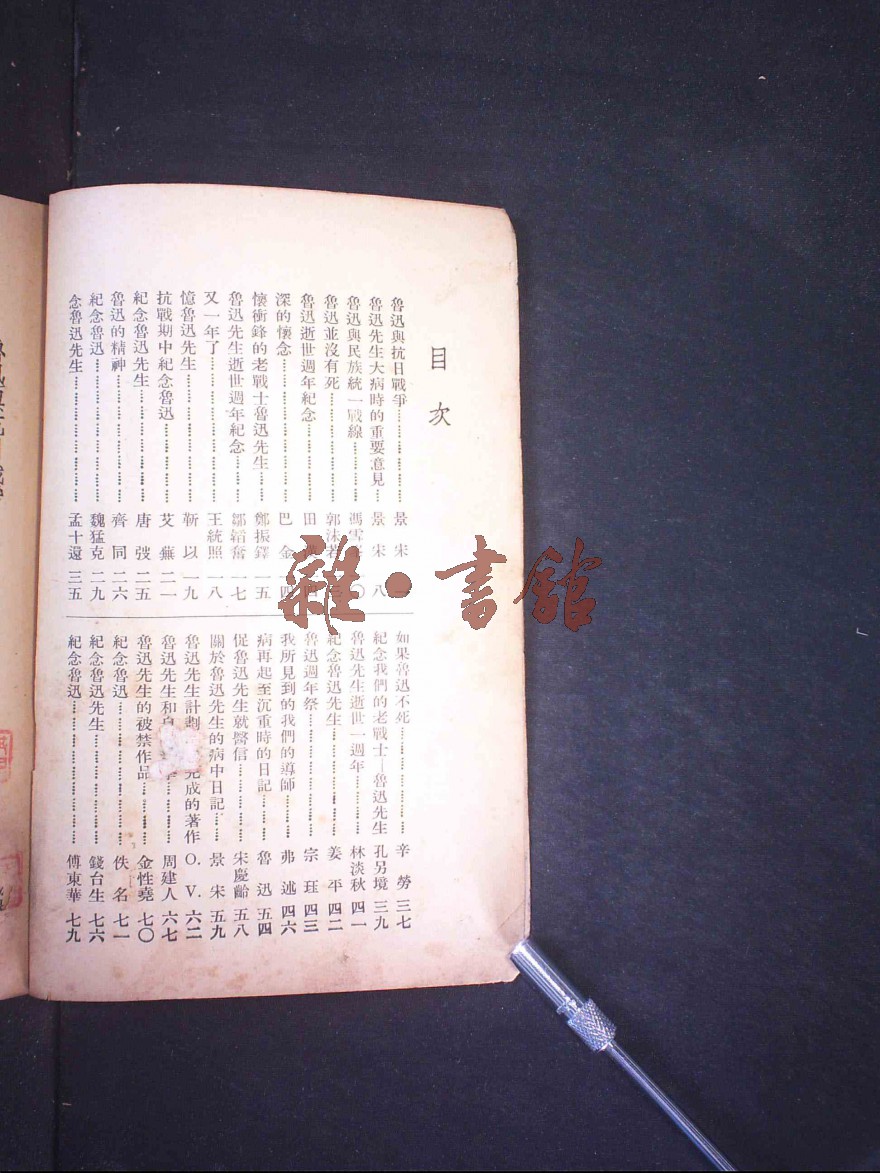 目次
魯迅與抗日戰爭……景宋 一
魯迅先生大病時的重要意見…景宋 八
魯迅與民族統一戰線……馮雪
魯迅並沒有死……郭沫若
魯迅逝世週年紀念……田
深的懷念……巴金 四
懷衝鋒的老戰士魯迅先生…鄭振鐸 一五
魯迅先生逝世週年紀念……鄒韜奮 一七
又一年了……王統照 一八
憶魯迅先生……靳以 一九
抗戰期中紀念魯迅……艾蕪 二一
紀念魯迅先生……唐弢 二五
魯迅的精神……齊同 二六
紀念魯迅……魏猛克 二九
念魯迅先生……孟十還 三五
如果魯迅不死……辛勞 三七
紀念我們的老戰士—魯迅先生 孔另境 三九
魯迅先生逝世一週年……林淡秋 四一
紀念魯迅先生……姜平 四二
魯迅週年祭……宗珏 四三
我所見到的我們的導師……弗述 四六
病再起至沉重時的日記……魯迅 五四
促魯迅先生就醫信……宋慶齡 五八
關於魯迅先生的病中日記…景宋 五九
魯迅先生計劃 完成的著作 O.V. 六二
魯迅先生和 周建人 六七
魯迅先生的被禁作品……金性堯 七〇
紀念魯迅……佚名 七一
紀念魯迅先生……錢台生 七六
紀念魯迅……傅東華 七九
雜·書館